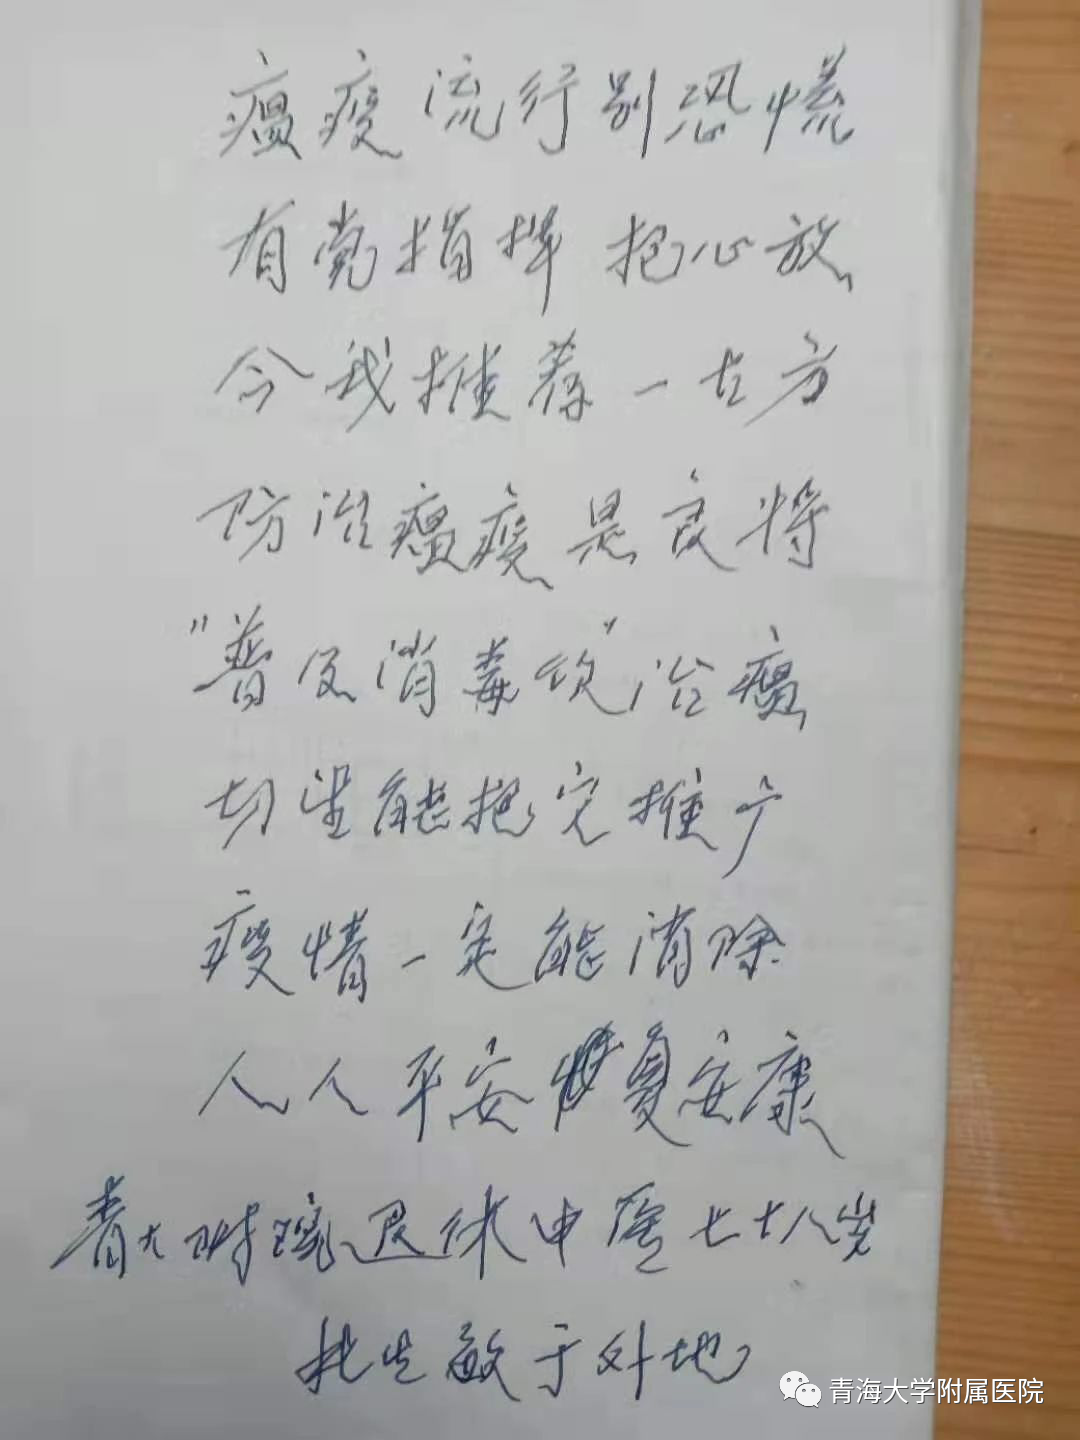 瘟疫流行别恐慌
有党指挥把心放
今我推荐一古方
防治瘟疫是良将
"普及消毒饮"治瘟
切望能把它推广
疫情一定能消除
人人平安恢复安康
青大附院退休中医七十八岁
敏于外地
青海大学附属医院